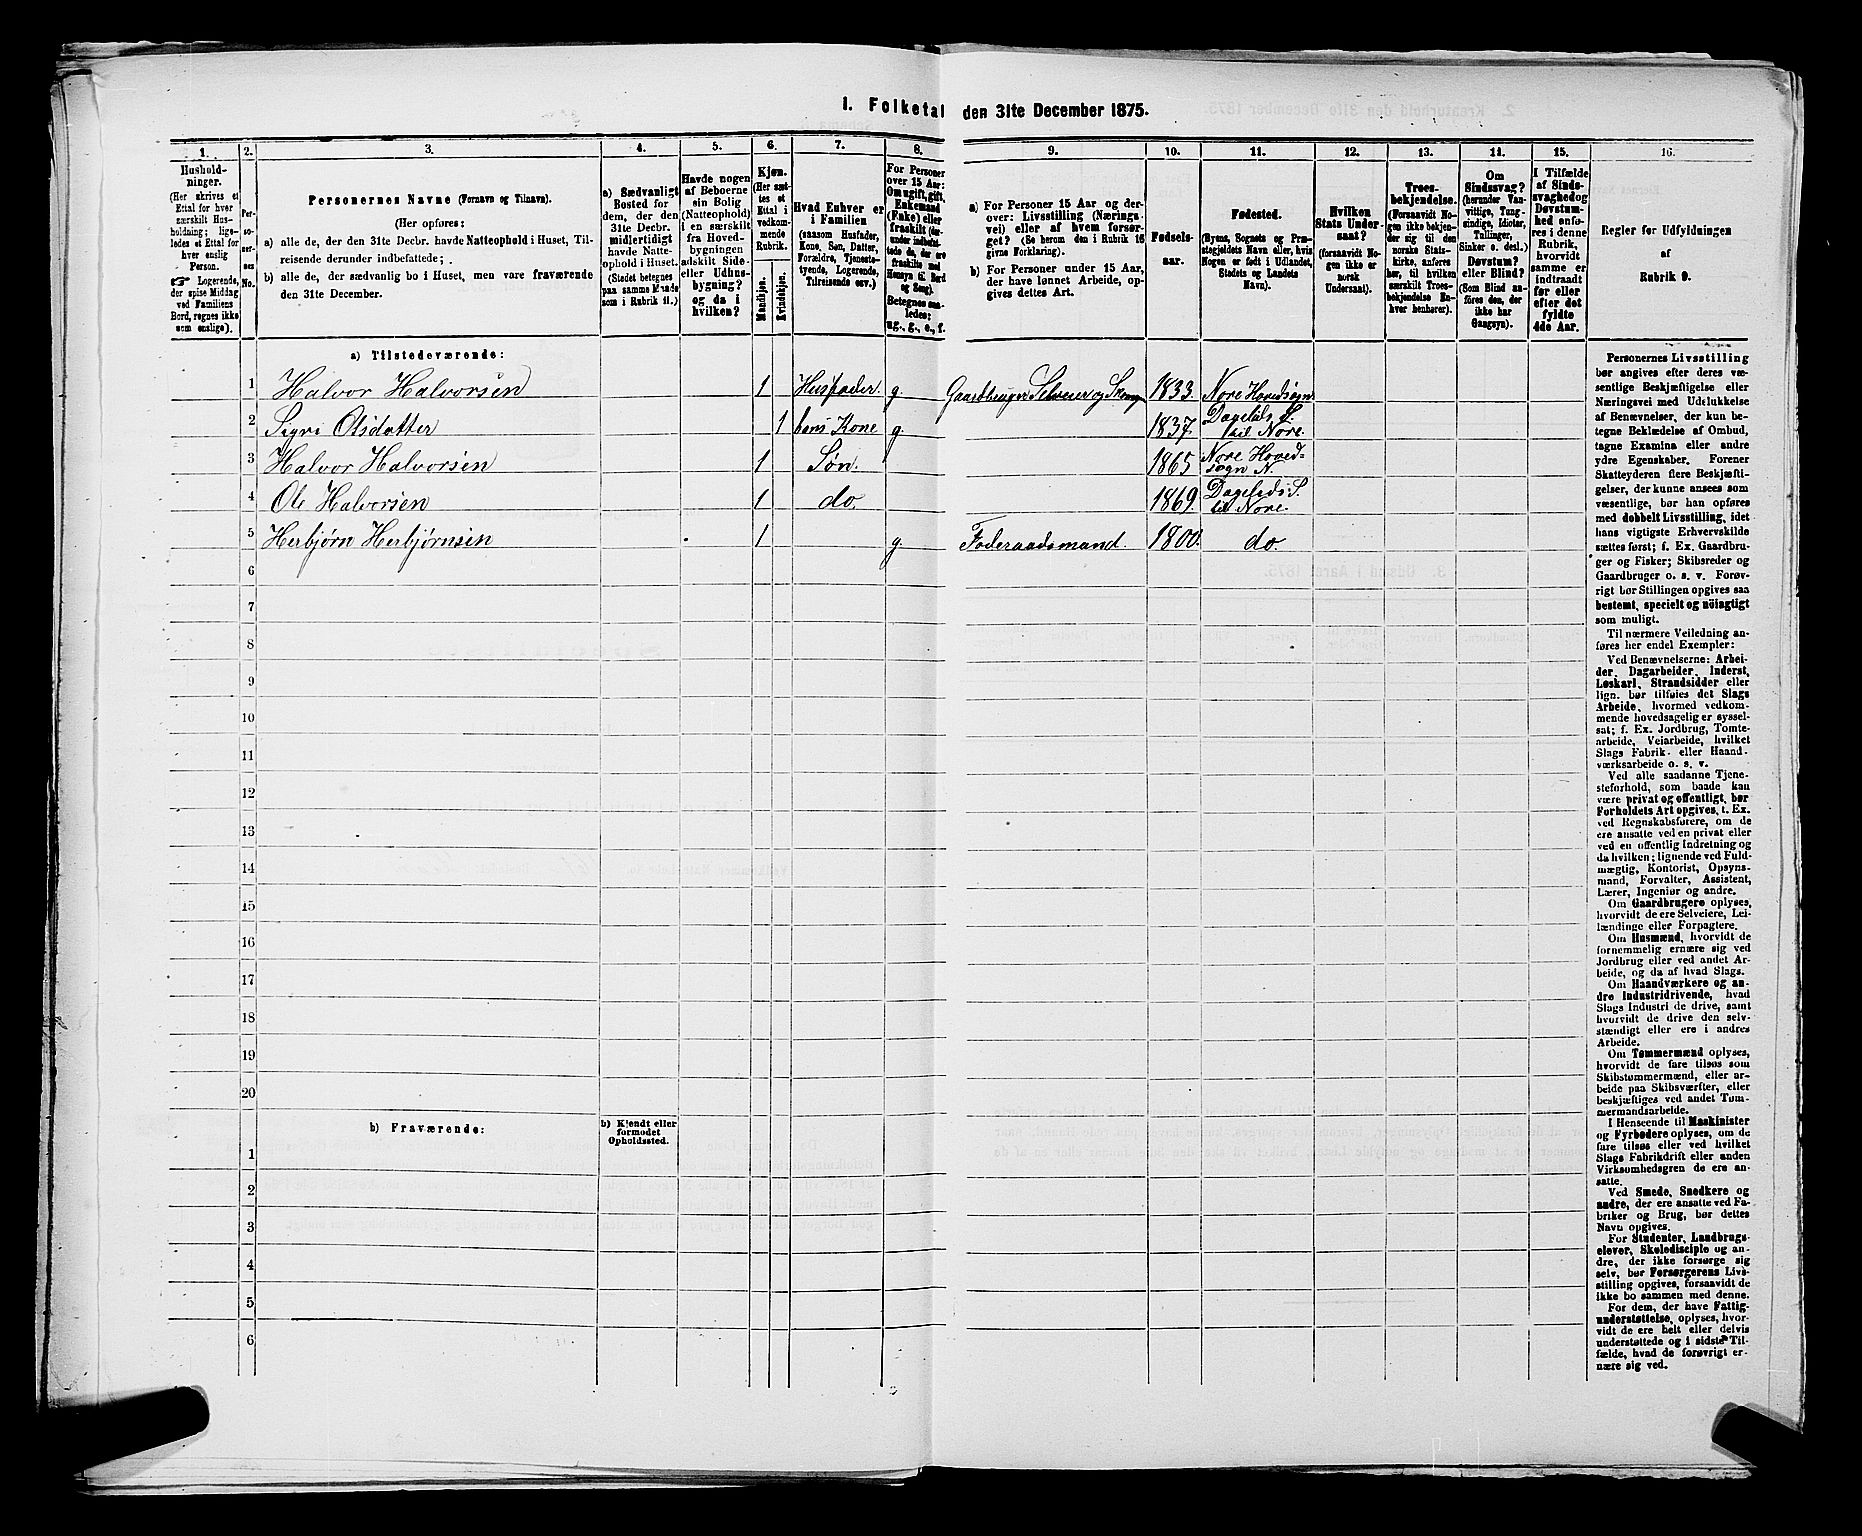 I. Folketal den 31te December 1875.
1. 2. 3. 4. 5. 6. 7. 8. 9. 10. 11. 12. 13. 14. 15. 16.
Hushold-
ninger.
(Her skrives et
Ettal for hver
særskilt Hus-
holdning; lige-
ledes et Ettal for
hver enslig
Person.
☞ Logerende,
der spise Middag
ved Familiens
Bord, regnes ikke
som enslige).
Per-
so-
ner-
nes
No.
Personernes Navne (Fornavn og Tilnavn).
(Her opføres:
a) alle de, der den 31te Decbr. havde Natteophold i Huset, Til-
reisende derunder indbefattede;
b) alle de, der sædvanlig bo i Huset, men vare fraværende
den 31te December.
a) Sædvanligt
Bosted for
dem, der den
31te Decbr.
midlertidigt
havde Natte-
ophold i Huset.
(Stedet betegnes
paa samme Maade
som i Rubrik 11.)
Havde nogen
af Beboerne
sin Bolig
(Natteophold)
i en særskilt
fra Hoved-
bygningen
adskilt Side-
eller Udhus-
bygning?
og da i
hvilken?
Kjøn.
(Her sæt-
tes et
Ettal i
vedkom-
mende
Rubrik.
Mandkjøn.
Kvindekjøn.
Hvad Enhver er
i Familien
(saasom Husfader,
Kone, Søn, Datter,
Forældre, Tjeneste-
tyende, Logerende,
Tilreisende osv.)
For Personer
over 15 Aar:
Om ugift, gift,
Enkemand
(Enke) eller
fraskilt (der-
under indbefat-
tede de, der ere
fraskilte med
Hensyn til Bord
og Seng).
Betegnes saa-
ledes:
ug., g., e., f.
a) For Personer 15 Aar og der-
over: Livsstilling (Nærings-
vei) eller af hvem forsør-
get? (Se herom den i Rubrik 16
givne Forklaring).
b) For Personer under 15 Aar,
der have lønnet Arbeide, op-
gives dettes Art.
Fødsels-
aar.
Fødested.
(Byens, Sognets og Præ-
stegjeldets Navn eller, hvis
Nogen er født i Udlandet,
Stedets og Landets
Navn).
Hvilken
Stats Under-
saat?
(forsaavidt No-
gen ikke er
norsk
Undersaat).
Troes-
bekjendelse.
(Forsaavidt No-
gen ikke bekjen-
der sig til den
norske Stats-
kirke, anføres
her, til hvilken
særskilt Troes-
bekjendelse En-
hver henhører).
Om
Sindssvag?
(herunder Van-
vittige, Tung-
sindige, Idioter,
Tullinger,
Sinker o. desl.)
Døvstum?
eller Blind?
(Som Blind an-
føres den, der
ikke har
Gangsyn).
I Tilfælde
af Sinds-
svaghed og
Døvstum-
hed anfø-
res i denne
Rubrik,
hvorvidt
samme er
indtraadt
før eller
efter det
fyldte
4de Aar.
Regler for Udfyldningen
af
Rubrik 9.
a) Tilstedeværende:
1 Halvor Halvorsen 1 Husfader. g. Gaardbruger Selveier og 1833. Nore Hovedsogn
2 Sigri Olsdatter 1 hans Kone g. 1837. Dagalids S. til Nore.
3 Halvor Halvorsen 1 Søn. 1865 Nore Hoved=sogn N.
4 Ole Halvorsen 1 do. 1869. Dagalids S. til Nore.
5 Herbjørn Herbjørnsen 1 g. Føderaadsmand. 1800. do.
6
7
8
9
10
11
12
13
14
15
16
17
18
19
20
b) Fraværende:
b) Kjendt eller
formodet
Opholdssted.
1
2
3
4
5
6
Personernes Livsstilling
bør angives efter deres væ-
sentlige Beskjæftigelse eller
Næringsvei med Udelukkelse
af Benævnelser, der kun be-
tegne Beklædelse af Ombud,
tagne Examina eller andre
ydre Egenskaber. Forener
Skatteyderen flere Beskjæfti-
gelser, der kunne ansees som
væsentlige, bør han opføres
med dobbelt Livsstilling, idet
hans vigtigste Erhvervskilde
sættes først; f. Ex. Gaardbru-
ger og Fisker; Skibsreder og
Gaardbruger o. s. v. Forøv-
rigt bør Stillingen opgives saa
bestemt, specielt og nöiagtigt
som muligt.
Til nærmere Veiledning an-
føres her endel Exempler:
Ved Benævnelserne: Arbei-
der, Dagarbeider, Inderst,
Løskarl, Strandsidder eller
lign. bør tilføies det Slags
Arbeide, hvormed vedkom-
mende hovedsagelig er syssel-
sat; f. Ex. Jordbrug, Tomte-
arbeide, Veiarbeide, hvilket
Slags Fabrik- eller Haand-
værksarbeide o. s. v.
Ved alle saadanne Tjene-
steforhold, som baade kan
være privat og offentligt, bør
Forholdets Art opgives, t. Ex.
ved Regnskabsførere, om de
ere ansatte ved en privat eller
ved en offentlig Indretning og
da hvilken; lignende ved Fuld-
mægtig, Kontorist, Opsyns-
mand, Forvalter, Assistent,
Lærer, Ingeniør og andre.
Om Gaardbrugere oplyses,
hvorvidt de ere Selveiere, Lei-
lændinge eller Forpagtere.
Om Husmænd, hvorvidt de
fornemmelig ernære sig ved
Jordbrug eller ved andet Ar-
beide, og da af hvad Slags.
Om Haandværkere og an-
dre Industridrivende, hvad
Slags Industri de drive, samt
hvorvidt de drive den selv-
stændigt eller ere i andres
Arbeide.
Om Tømmermænd oplyses,
hvorvidt de fare tilsøs som
Skibstømmermænd, eller ar-
beide paa Skibsværfter, eller
beskjæftiges ved andet Tøm-
mermandsarbeide.
I Henseende til Maskinister
og Fyrbødere oplyses, om de
fare tilsøs eller ved hvilket
Slags Fabrikdrift eller anden
Virksomhedsgren de ere an-
satte.
Ved Smede, Snedkere og
andre, der ere ansatte ved Fa-
briker og Brug, bør dettes
Navn opgives.
For Studenter, Landbrugs-
elever, Skoledisciple og an-
dre, der ikke forsørge sig
selv, bør Forsørgerens Livs-
stilling opgives, forsaavidt de
ikke bo sammen med denne.
For dem, der have Fattig-
understøttelse, oplyses, hvor-
vidt de ere helt eller delvis
understøttede og i sidste Til-
fælde, hvad de forøvrigt er-
nære sig ved.